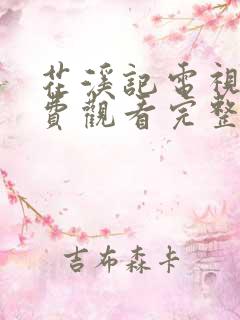 茌溪記電視
費觀看完整
吉布森卡